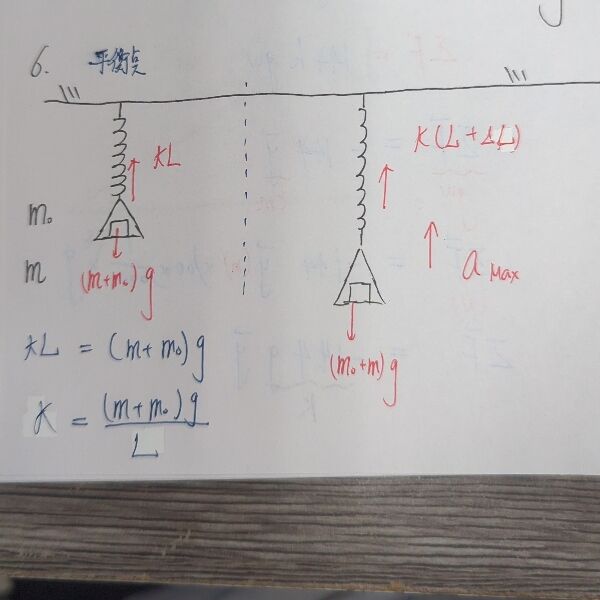 6. 平衡点
kL
K(L + ΔL)
m₀
m
(m+m₀)g
a Max
(m₀+m)g
kL = (m+m₀)g
K = (m+m₀)g / L